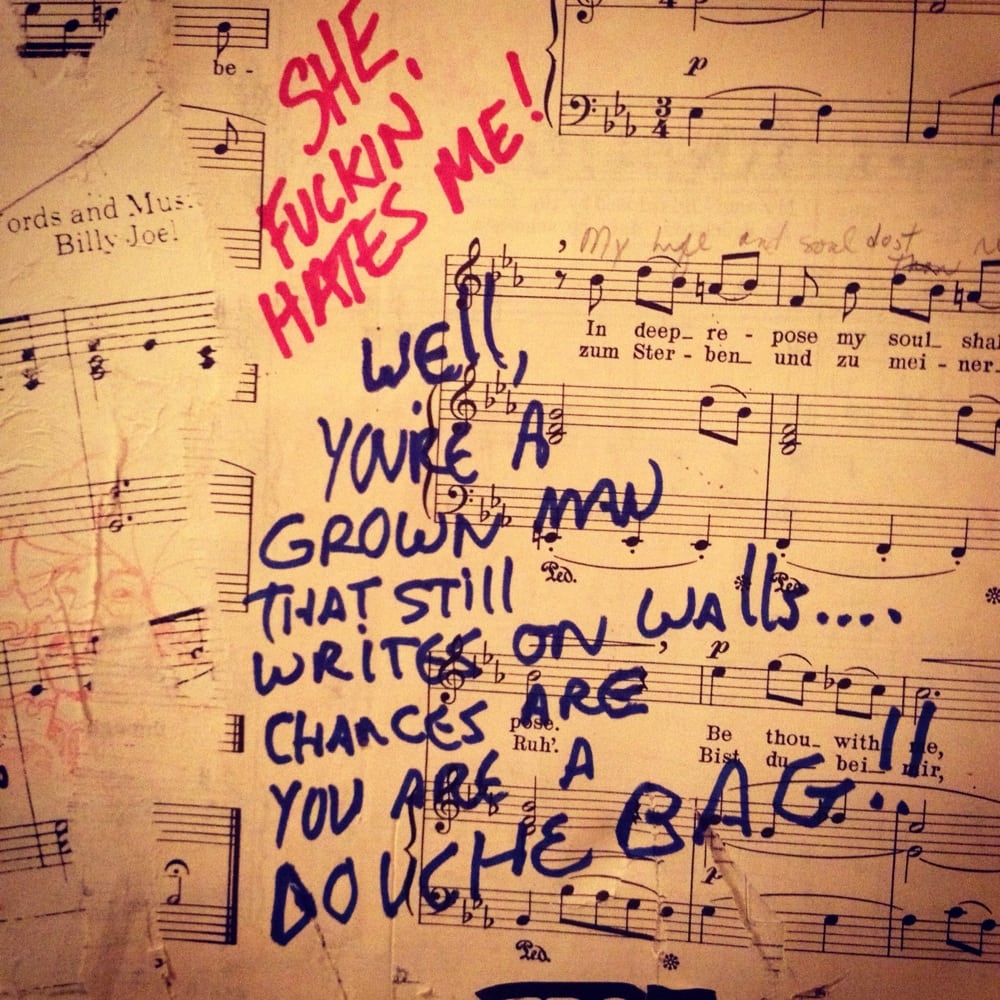 be -
SHE
FUCKIN
HATES ME!
p
3
4
ords and Mus
Billy Joel
My life and soul dost
In deep_ re - pose my soul_ shal
zum Ster - ben_ und zu mei - ner_
WEll,
YOU'RE A
GROWN MAN
THAT STill
WRiTES ON WAllS....
CHANCES ARE
YOU ARE A
DOUCHE BAG..!!
Ped.
Ped.
p
pose.
Ruh'.
Be thou_ with me,
Bist du_ bei_ mir,
p
Ped.